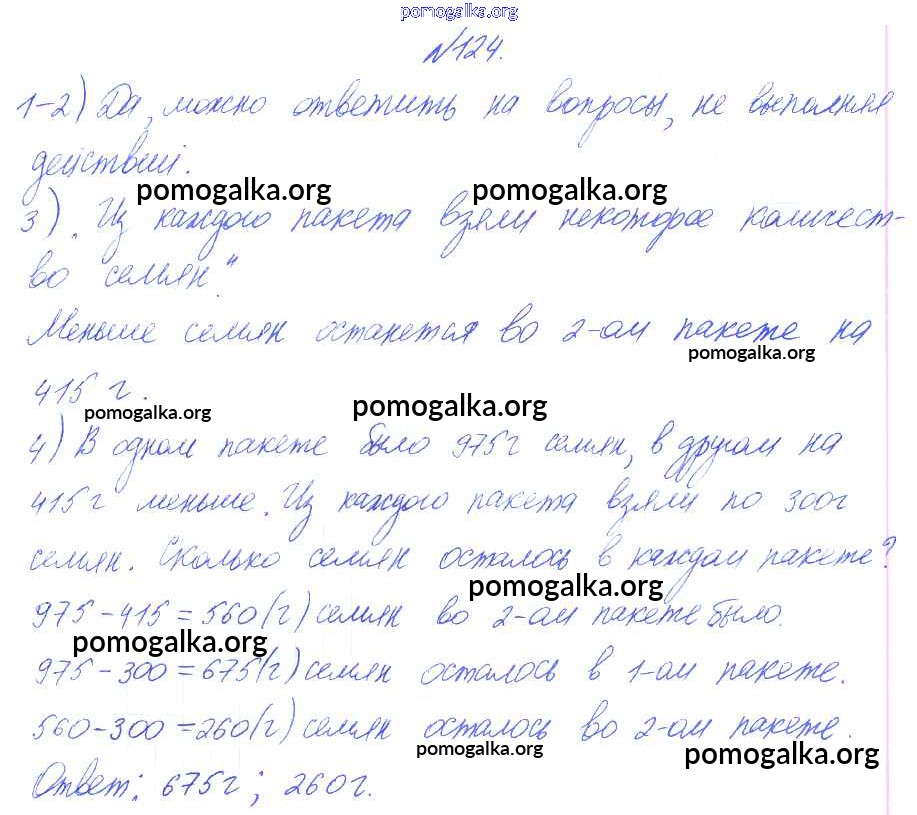 pomogalka.org
№124.
1-2) Да, можно ответить на вопросы, не выполняя
действий.
pomogalka.org pomogalka.org
3) „Из каждого пакета взяли некоторое количест-
во семян."
Меньше семян останется во 2-ом пакете на
pomogalka.org
415 г.
pomogalka.org pomogalka.org
4) В одном пакете было 975г семян, в другом на
415г меньше. Из каждого пакета взяли по 300г
семян. Сколько семян осталось в каждом пакете?
pomogalka.org
975-415=560(г) семян во 2-ом пакете было.
pomogalka.org
975-300=675(г) семян осталось в 1-ом пакете.
560-300=260(г) семян осталось во 2-ом пакете.
pomogalka.org pomogalka.org
Ответ: 675г; 260г.